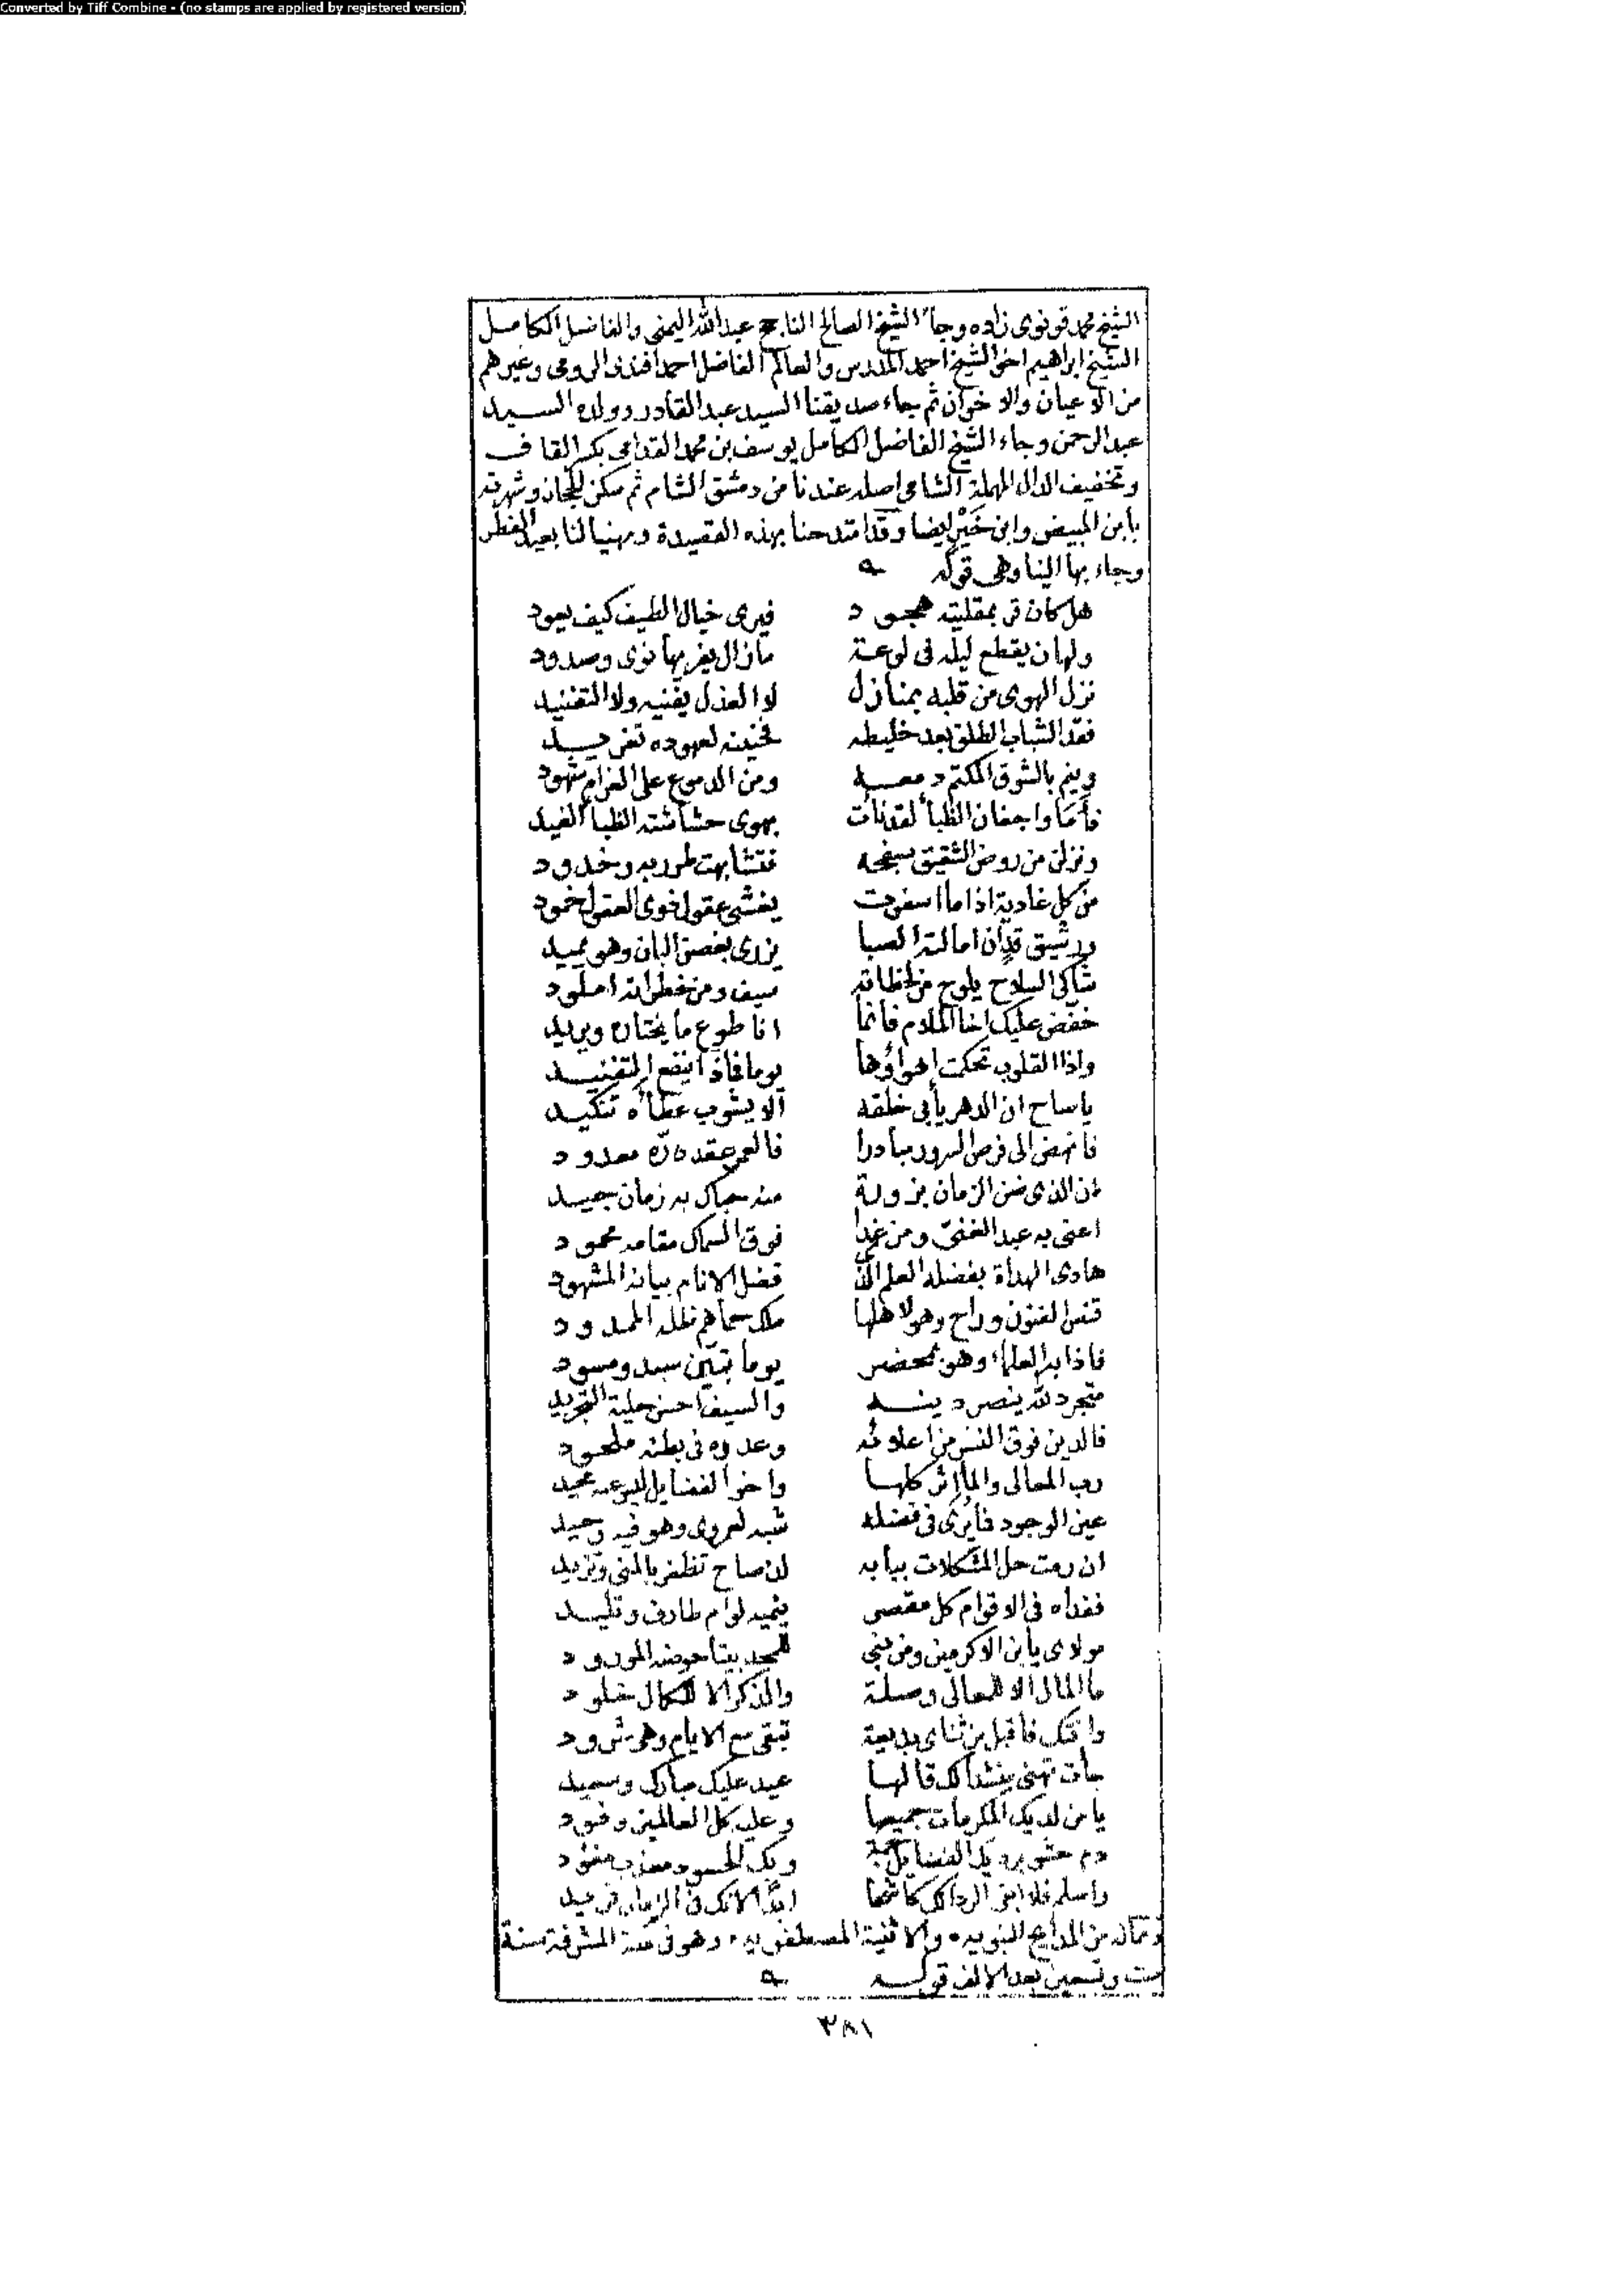 Converted by Tiff Combine - (no stamps are applied by registered version)
الشيخ محمد قونوى زاده وجاء الشيخ الصالح الناجح عبد الله اليمنى والفاضل الكامل
الشيخ ابراهيم اخى الشيخ احمد المدرس والعالم الفاضل احمد افندى الرومى وغيرهم
من الاعيان والاخوان ثم جاء صديقنا السيد عبد القادر وولده السيد
عبد الرحمن وجاء الشيخ الفاضل الكامل يوسف بن محمد القداعى بكسر القاف
وتخفيف الدال المهملة الشامى اصله عندنا من دمشق الشام ثم سكن الحجاز وشهرته
بابن المبيض وابن خير ايضا وقد امتدحنا بهذه القصيدة ومهنيا لنا بعيد الفطر
وجاء بها الينا وهى قوله
هل كان قر بمقلتيه هجود فيرى خيال الطيف كيف يعود
ولهان يقطع ليله فى لوعة مازال يغريها نوى وصدود
نزل الهوى من قلبه بمنازل لا العذل يفنيه ولا التفنيد
فقد الشباب الطلق بعد خليطه فحنينه لعهوده تغريد
وينم بالشوق المكتم دمعه ومن الدموع على الغرام شهود
فأما واجفان الظبا لقد نأت بهوى حشاشته الظباء الغيد
ونزلن من روض الشقيق بسفحه فتشابهت طور به وخدود
من كل غادية اذا ما اسفرت يغشى عقول ذوى العقول خمود
ورشيق قد ان امالته الصبا يزرى بغصن البان وهو يميد
شاكى السلاح يلوح من لحظاته سيف ومن خطراته املود
خفض عليك اخا الملام فانما انا طوع ما يختاره ويريد
واذا القلوب تحكمت اهواؤها يوما فماذا ينفع التفنيد
ياصاح ان الدهر يأبى خلقه الا يشوب عطاءه تنكيد
فانهض الى فرص السرور مبادرا فالعمر عقد دره معدود
ان الذى ضن الزمان بزورة منه حباك به زمان جيد
اعنى به عبد الغنى ومن غدا فوق السماك مقامه محمود
هادى الهداة بفضله العلم الذى فضل الانام بيانه المشهود
قنص الفنون وراح وهو لاهلها ملك حماهم ظله الممدود
فاذا بدا العلماء وهو بمحضر يوما تبين سيد ومسود
متجرد لله ينصر دينه والسيف احسن حلية التجريد
فالدين فوق النسر من اعلائه وعدوه فى بطنه ملحود
رب المعالى والمآثر كلها واخو الفضايل للبوعه عميد
عين الوجود فما يرى فى فضله شبه لعمروى وهو فيه وحيد
ان رمت حل المشكلات ببابه لذ صاح تظفر بالمنى وتزيد
ففداه فى الاقوام كل مقصر ينميه لوام طارف وتليد
مولاى يابن الاكرمين ومن بنى للمجد بيتا حوضه المورود
ما المال الا للمعالى وصلة والذكر الا للكمال خلود
واتتك فاقبل من ثناى بديعة تبقى مع الايام وهى شرود
جأت تهنى ينشد لك قالها عيد عليك مبارك وسعيد
يا من لديك المكرمات جميعها وعليه كل العالمين وفود
دم حشو برديك الفضايل وبك الحسود معذب مفؤد
واسلم فلا ابقى الردا لك كاشحا ابدا لانك فى الزمان فريد
ومما له من المدايح النبويه والاثنية المصطفويه وهو فى مكة المشرفة سنة
ست وتسعين بعد الالف قوله
٣٨١